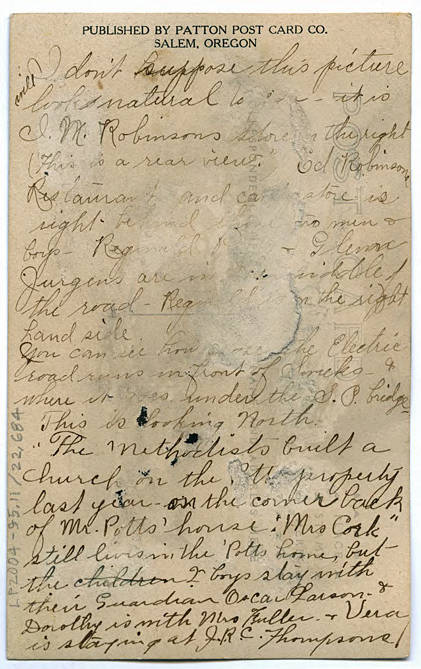 PUBLISHED BY PATTON POST CARD CO.
SALEM, OREGON
I don't suppose this picture
will look natural to you - it is
J. M. Robinsons store on the right
(This is a rear view." Ed Robinsons
Restaurant and card store is
right behind two men &
boys. Reginald & Glenn
Jurgens are in middle of
the road - Reginald is on the right
hand side
You can see how the Electric
road runs in front of &
where it goes under the S. P. bridge
This is looking North.
"The Methodists built a
church on the Potts property
last year - on the corner back
of Mr. Potts' house. "Mrs Cork"
still lives in the Potts home, but
the children & boys stay with
their Guardian Oscar Larson - &
Dorothy is with Mrs Fuller - & Vera
is staying at J. R. C. Thompsons)
LP2004-95.11/22,684